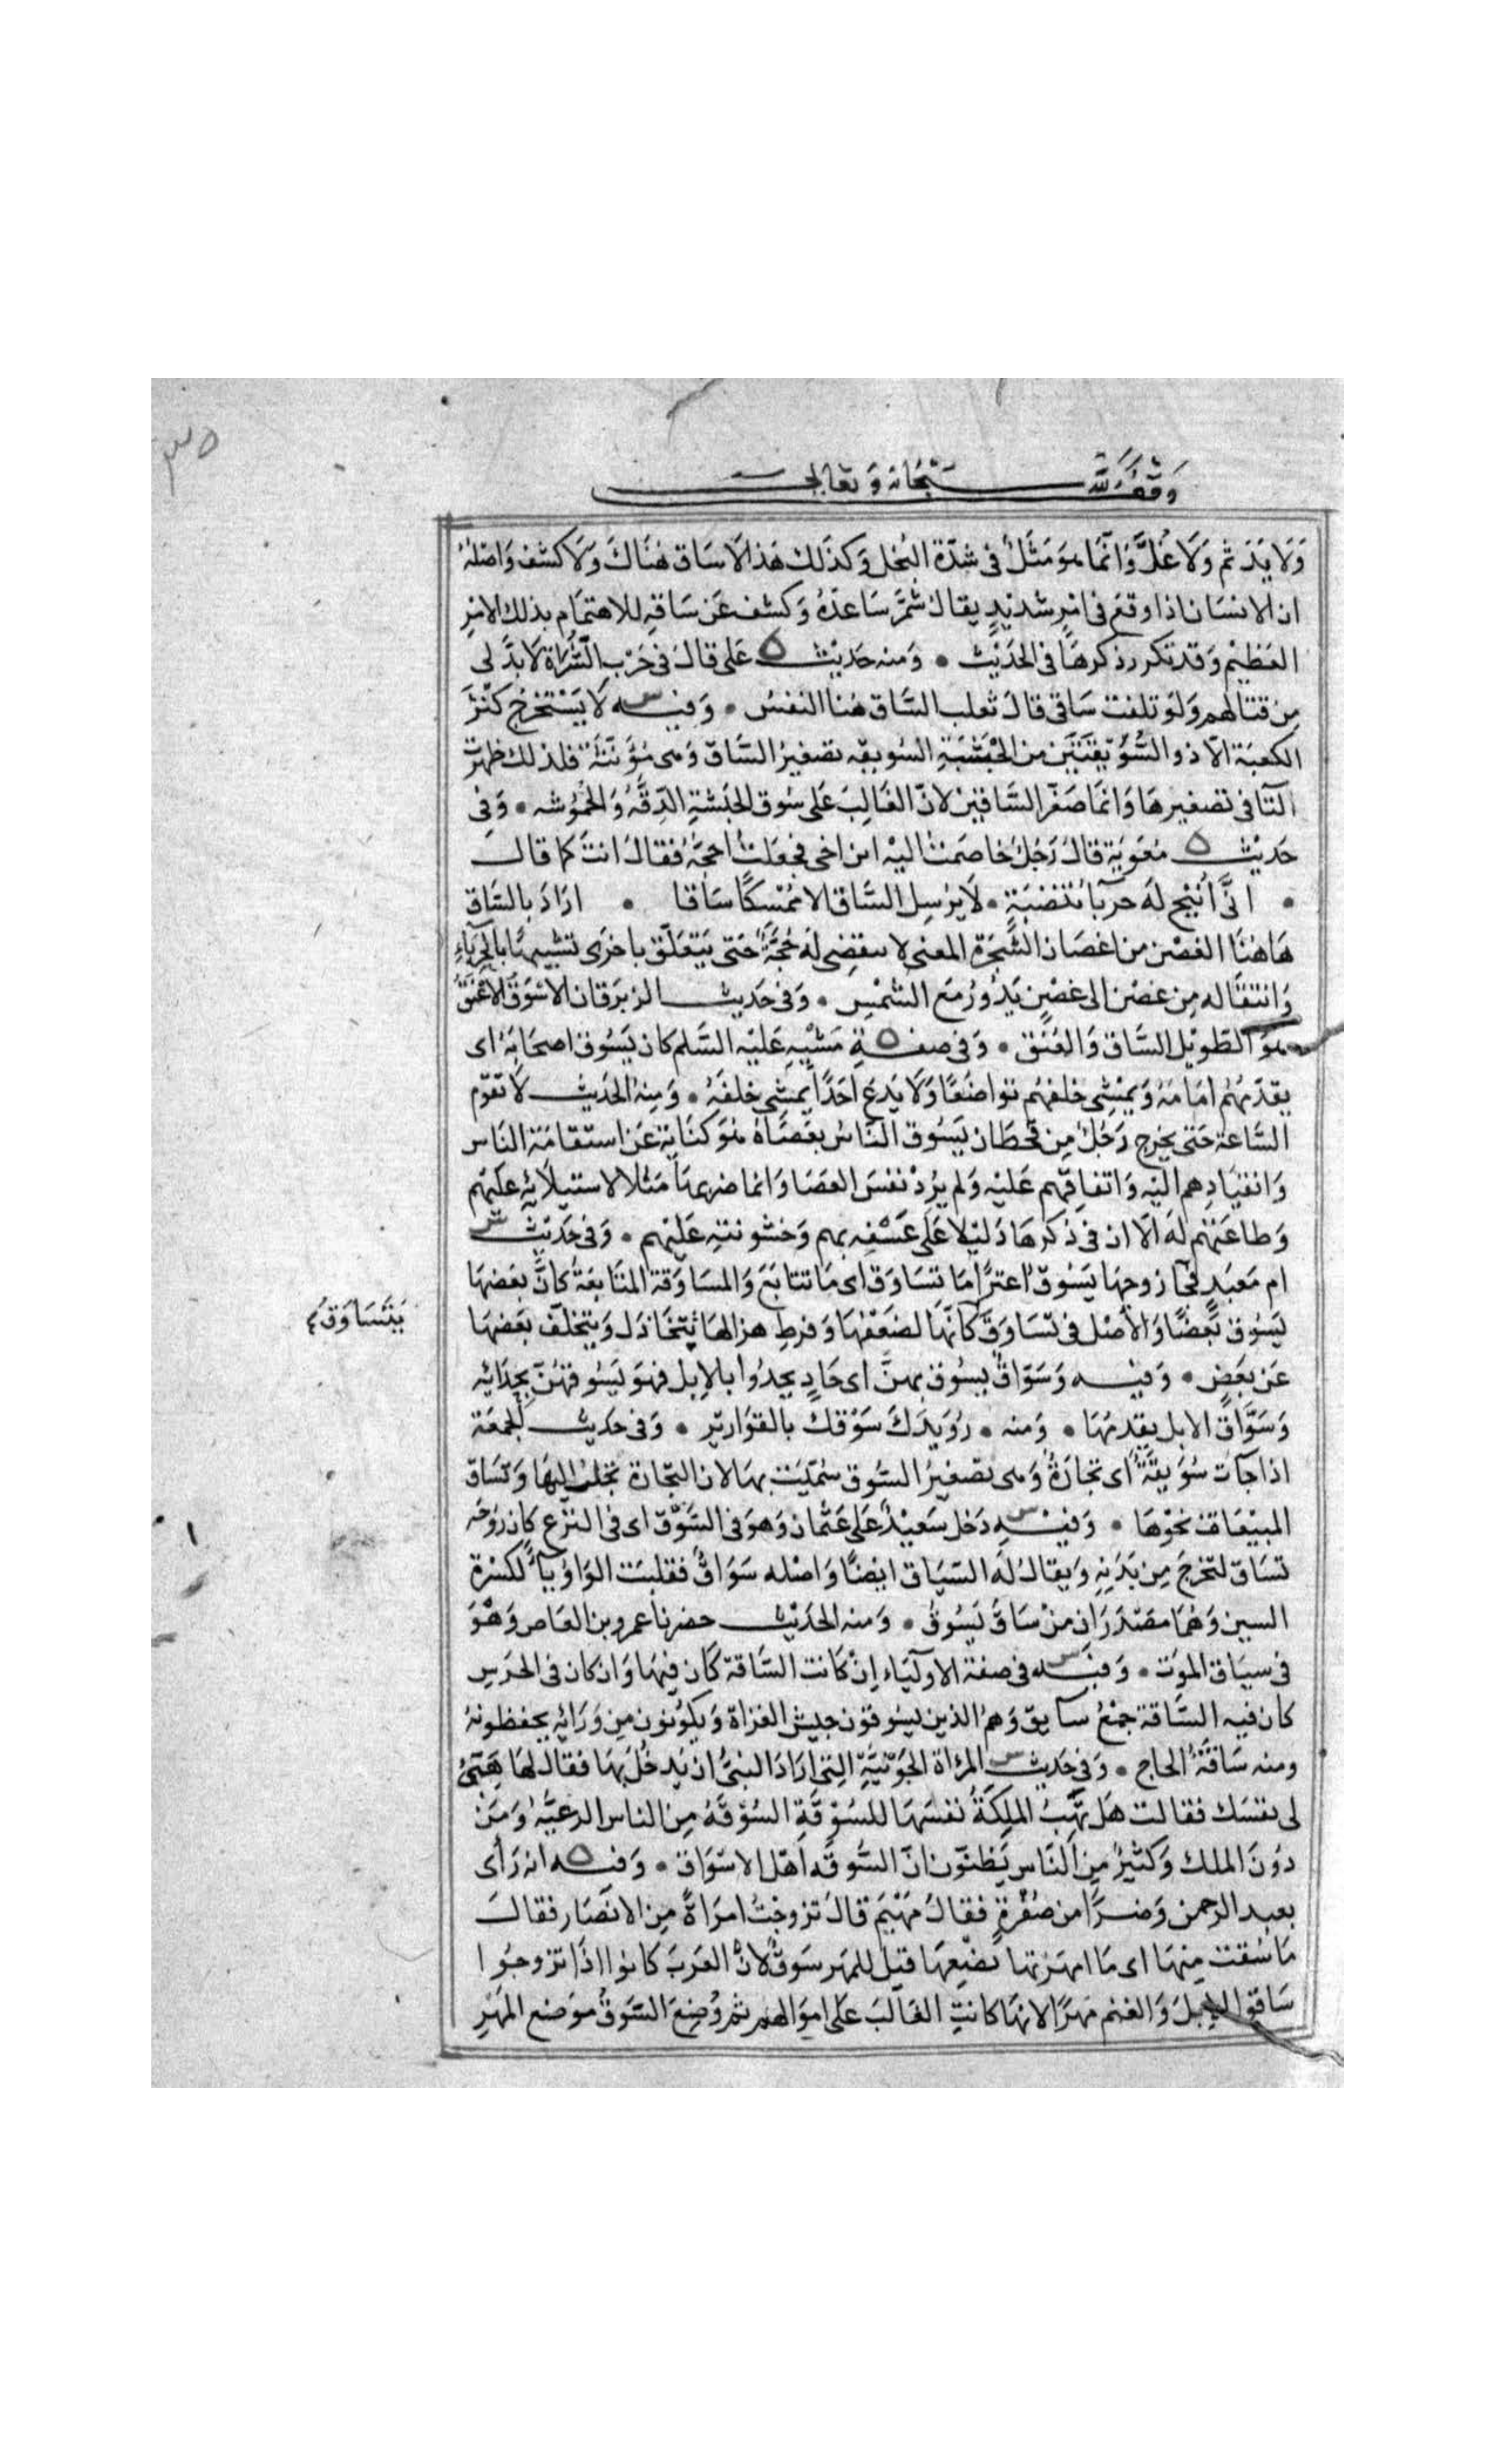 وقف لله سبحانه وتعالى
وَلَا يَدَ ثم وَلَا غُلَّ وَانّمَا هوَ مَثَلٌ فى شدّة البُخل وَكذَلك هَذا لَا سَاق هُنَاكَ وَلَا كشف وَاصْلُهُ
ان الانسَان اذا وقعَ فى امْرٍ شدنيدٍ يقال شمَّرَ سَاعدَهُ وَكشف عَن سَاقهِ للاهتمَام بذلك الامرِ
العَظيْم وَقد تكرر ذكرهَا فى الحَديْث • وَمنه حَديْث على قالَ فى حَرْبِ الشُّرَاة لَا بدَّ لى
مِن قتَالهم وَلوْ تلفت سَاقى قالَ ثعلب السَّاق هُنا النفسُ • وَفيْه لَا يَسْتَخْرِجُ كنْزَ
الكعبَة الّا ذو السُّوَيْقتَيْن من الحَبَشَةِ السُويقة تصغيرُ السَّاق وَهى مُؤنّثَة فلذلك ظهرَت
التا فى تصغيرهَا وَانمَا صَغّر السَّاقيْن لانّ الغَالِبَ عَلى سُوق الحبَشةِ الدِّقَّةُ وَالحُمُوشه • وَفى
حَديْث مُعَوية قال رَجُلٌ خاصَمتُ اليْه ابن اخى فجعَلتُ احجّهُ فقالَ انتَ كما قال
• انَّى أُتِيْحَ لَه حربَاءُ تَنْضُبَةٍ • لَا يرْسِلُ السَّاق الا مُمْسِكًا سَاقا • ارَادَ بالسَّاق
هَاهُنَا الغصْن من اغصَان الشَّجَرَة المعنى لا تنقضى لَه حُجَّةٌ حَتى يَتعَلَّق باخرى تشبيهًا بالحِرْبَاءِ
وَانتقَاله مِن غصْن الى غصْنٍ يَدُورُ مَع الشمْس • وَفى حَديث الزبرَقان الاسْوَق الاعْنَق
هوَ الطَّويْل السَّاق وَالعُنُق • وَفى صفةِ مَشْيِهِ عَليْه السَّلم كان يَسُوق اصحَابَهُ اى
يقدّمهُم امَامَهُ وَيمْشِى خلفهُم تواضُعًا وَلَا يَدَع احَدًا يمشِى خلفَهُ • وَمِنهُ الحَديث لَا تقوم
السَّاعة حَتى يخرج رَجُلٌ مِن قحطَان يَسُوق النّاسَ بعَصَاهُ هُوَ كنَاية عَن استقامَة النَاس
وَانقيَادِهم اليْه وَاتفاقِهم عَليْه وَلم يُردْ نفسَ العصَا وَانما ضربهَا مَثلا لاستيلَائِه عليهم
وَطاعَتهم لَه الّا ان فى ذكرهَا دَليْلا عَلى عَسْفِه بهم وَخشونتهِ عَليْهم • وَفى حَديْث
ام مَعبَدٍ فجَا زوجهَا يَسُوق اعنزًا مَا تسَاوَق اى مَا تتابَعَ وَالمسَاوَقة المتَابَعَة كانَّ بعَضهَا
يَسُوق بعضًا وَالأصْل فى تسَاوَق كَانّهَا لضعْفهَا وَفرطِ هزالهَا تتخَاذَل وَيتخلّف بَعضهَا
يَتَسَاوَقُ
عَن بعَضٍ • وَفيْه وَسَوّاقٌ يسُوق بهنَّ اى حَادٍ يحدُوا بالإبل فهوَ يَسُوقهُنَّ بحِدَائِه
وَسَوَّاقُ الابل يقدمُهَا • وَمنه • رُوَيدَكَ سَوْقك بالقوَارير • وَفى حَديث الجمعَة
اذا جآت سُوَيقَةٌ اى تجَارَةٌ وَهى تصغيرُ السُوق سُمّيَت بهَا لان التجَارة تجلبُ اليهَا وَتسَاق
المبيْعَات نحْوَهَا • وَفيْه دَخل سَعيْدٌ عَلى عثمان وَهوَ فى السَّوْق اى فى النزْع كان رُوحَه
تسَاق لتخرجَ مِن بَدَنهِ وَيقالُ لَه السّيَاق ايضًا وَاصْله سَوَاقٌ فقلبَت الوَاوُ يَآءً لكسْرة
السين وَهُمَا مصْدَرَان منْ سَاقَ يَسُوقُ • وَمنه الحَديْث حضرنا عمرو بن العَاص وَهْوَ
فى سيَاق الموْت • وَفيْه فى صفة الاوليَاء إنْ كَانت السَّاقة كَان فيهَا وَان كان فى الحَرَسِ
كان فيه السَّاقة جمْعُ سآيق وَهمُ الذين يسُوقون جيش الغزاة وَيكوُنون مِن وَرَائهِ يحفظونهُ
ومنه سَاقةُ الحاج • وَفى حَديث المرْاة الجَوْنيَّةِ التى ارَادَ النبىُّ ان يَدخُلَ بهَا فقالَ لهَا هَبِى
لى نفسَك فقالت هَل تَهَبُ الملِكَةُ نفسَهَا للسُوْقَةِ السُوْقَةُ مِنَ الناس الرعيَّة وَمَن
دُونَ الملك وَكثيرٌ مِن النَّاس يَظنوّن انّ السُّوقَه اهْل الاسْوَاق • وَفيه انه رَأى
بعبد الرحمن وَضرًا من صُفْرةٍ فقالَ مَهْيَم قالَ تزوجتُ امرَاةً مِن الانْصَار فقالَ
مَا سُقت مِنهَا اى مَا امهَرْتها بُضْعِهَا قيْل للمهر سَوْقٌ لانّ العَرَبَ كانوا اذَا تزوجُوا
سَاقوا الابلَ وَالغنم مَهرًا لانهَا كانتِ الغَالبَ عَلى اموَالهم ثم وُضِعَ السَّوقُ موَضع المَهرِ